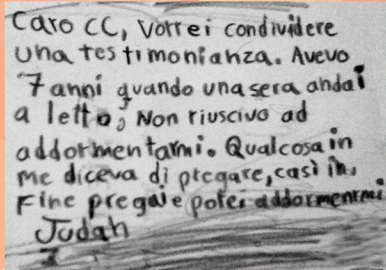 Caro CC, Vorrei condividere
una testimonianza. Avevo
7 anni quando una sera andai
a letto, Non riuscivo ad
addormentarmi. Qualcosa in
me diceva di pregare, casì in
Fine pregai e potei addormenrmi
Judah